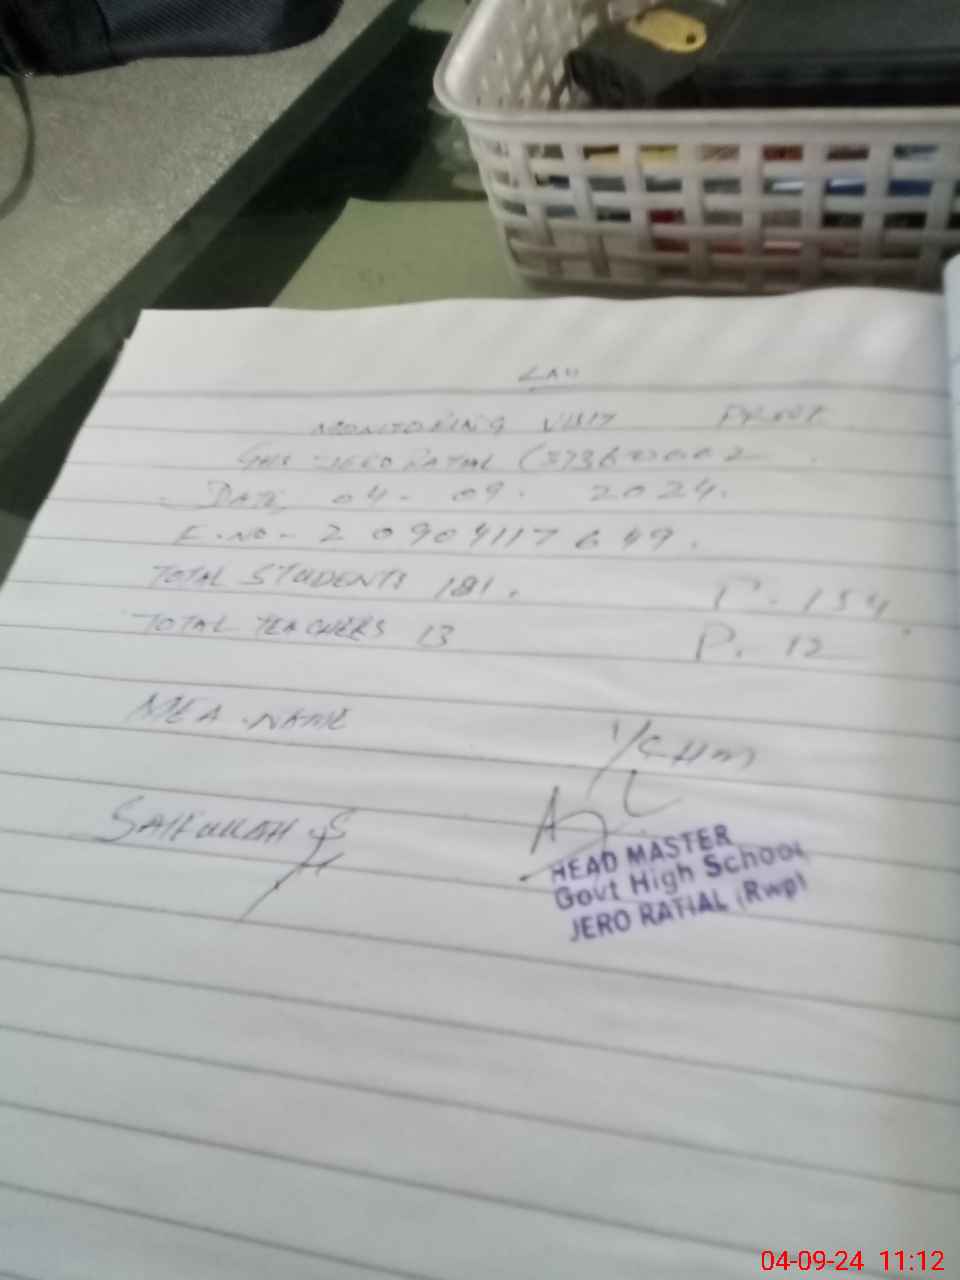 MONITORING VISIT PROOF
GHS JERO RATIAL
DATE 04-09-2024.
F.NO-20904117649.
TOTAL STUDENTS 181. P. 154
TOTAL TEACHERS 13 P. 12
MEA. NAME
I/C HM
SAIFULLAH
HEAD MASTER
Govt High School
JERO RATIAL (Rwp)
04-09-24 11:12